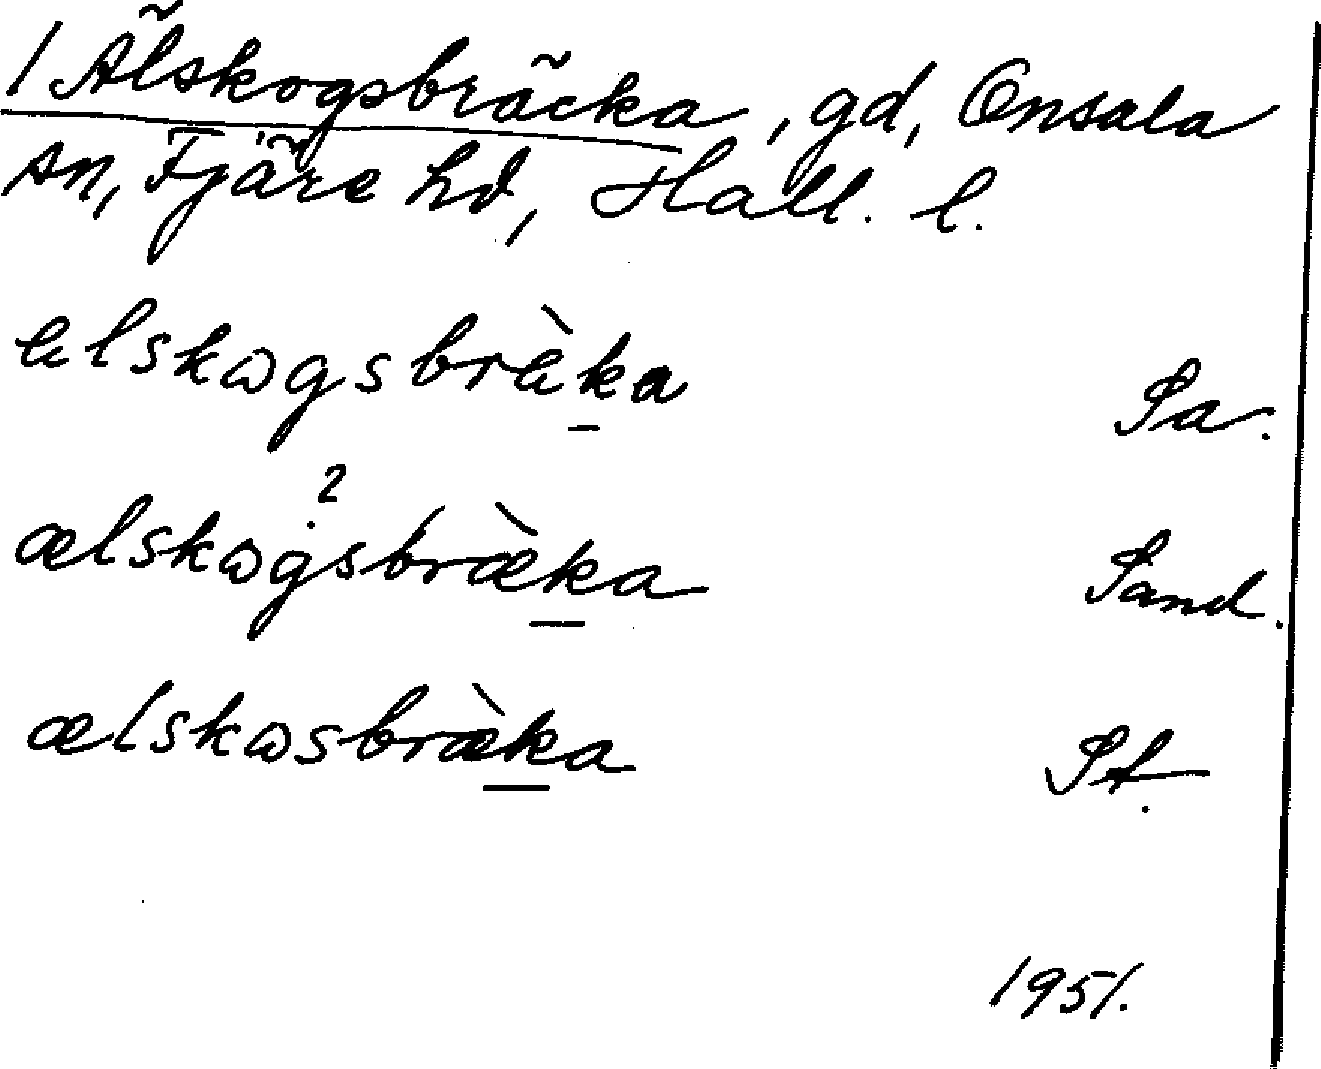 / Älskogsbräcka, gd, Onsala
sn, Fjäre hd, Hall. l.
ælskωgsbræ̀ka Sa.
?
ælskωgsbræ̀ka Sand.
ælskωsbræ̀ka St.
1951.